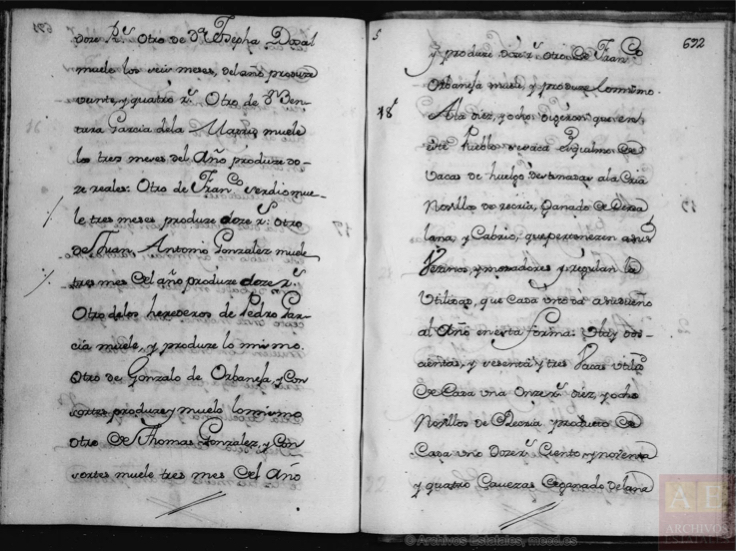 691
doze R.s Otro de D.ª Josepha Dosal
muele los seis meses, del año produze
veinte, y quatro r.s Otro de D.n Ben-
tura Garcia dela Madriz muele
los tres meses del Año produze do-
ze reales: Otro de Fran.co verdis mue-
le tres meses produze doze r.s otro
de Juan Antonio Gonzalez muele
tres mes del año produze doze r.s
Otro delos herederos de Pedro Gar-
cia muele, y produze lo mismo.
Otro de Gonzalo de Orbaneja, y con
sortes produze y muele lo mismo
Otro de Thomas Gonzalez, y con
sortes muele tres mes del Año
5
692
y produze doze r.s otro de Fran.co
Orbaneja muele, y produze lo mismo.
18 A la diez, y ocho dixeron que en
este Pueblo
Vacas de huelgo destinadas ala Cria
Novillos de recria, Ganado de
lana, y Cabrio, que pertenezen a sus
Vezinos, y moradores y regulan la
Utilidad, que Cada uno da a su dueño
al Año en esta forma: Hay dos-
cientas, y sesenta y tres Vacas utilid
de Cada una Onze r.s diez, y ocho
Novillos de Recria producto de
Cada uno Doze r.s Ciento y noventa
y quatro Cavezas de ganado de lana
AE
ARCHIVOS
ESTATALES
© Archivos Estatales, mecd.es